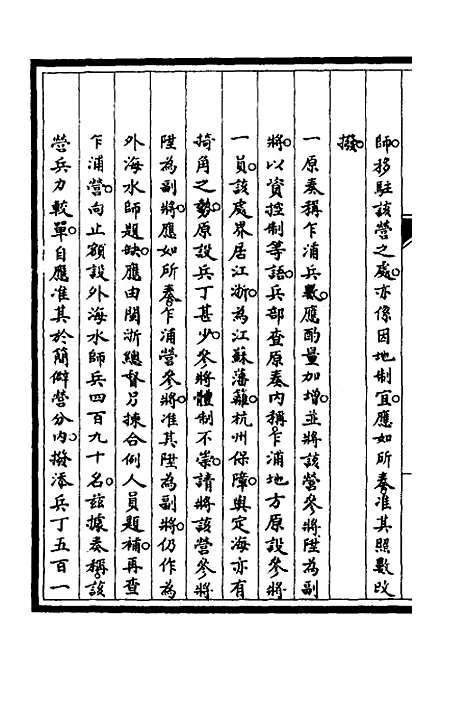 師移駐該營之處亦係因地制宜應如所奏准其照數改
撥
一原奏稱乍浦兵數應酌量加增並將該營參將陞為副
將以資控制等語兵部查原奏內稱乍浦地方原設參將
一員該處界居江浙為江蘇藩籬杭州保障與定海亦有
犄角之勢原設兵丁甚少參將體制不崇請將該營參將
陞為副將應如所奏乍浦營參將准其陞為副將仍作為
外海水師題缺應由閩浙總督另揀合例人員題補再查
乍浦營向止額設外海水師兵四百九十名茲據奏稱該
營兵力較單自應准其於簡僻營分內撥添兵丁五百一